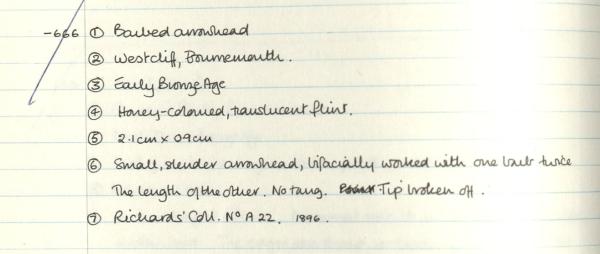 -666 ① Barbed arrowhead
② Westcliff, Bournemouth.
③ Early Bronze Age
④ Honey-coloured, translucent flint.
⑤ 2.1cm x 0.9cm
⑥ Small, slender arrowhead, bifacially worked with one barb twice
The length of the other. No tang. Tip broken off.
⑦ Richards' Coll. Nº A 22. 1896.